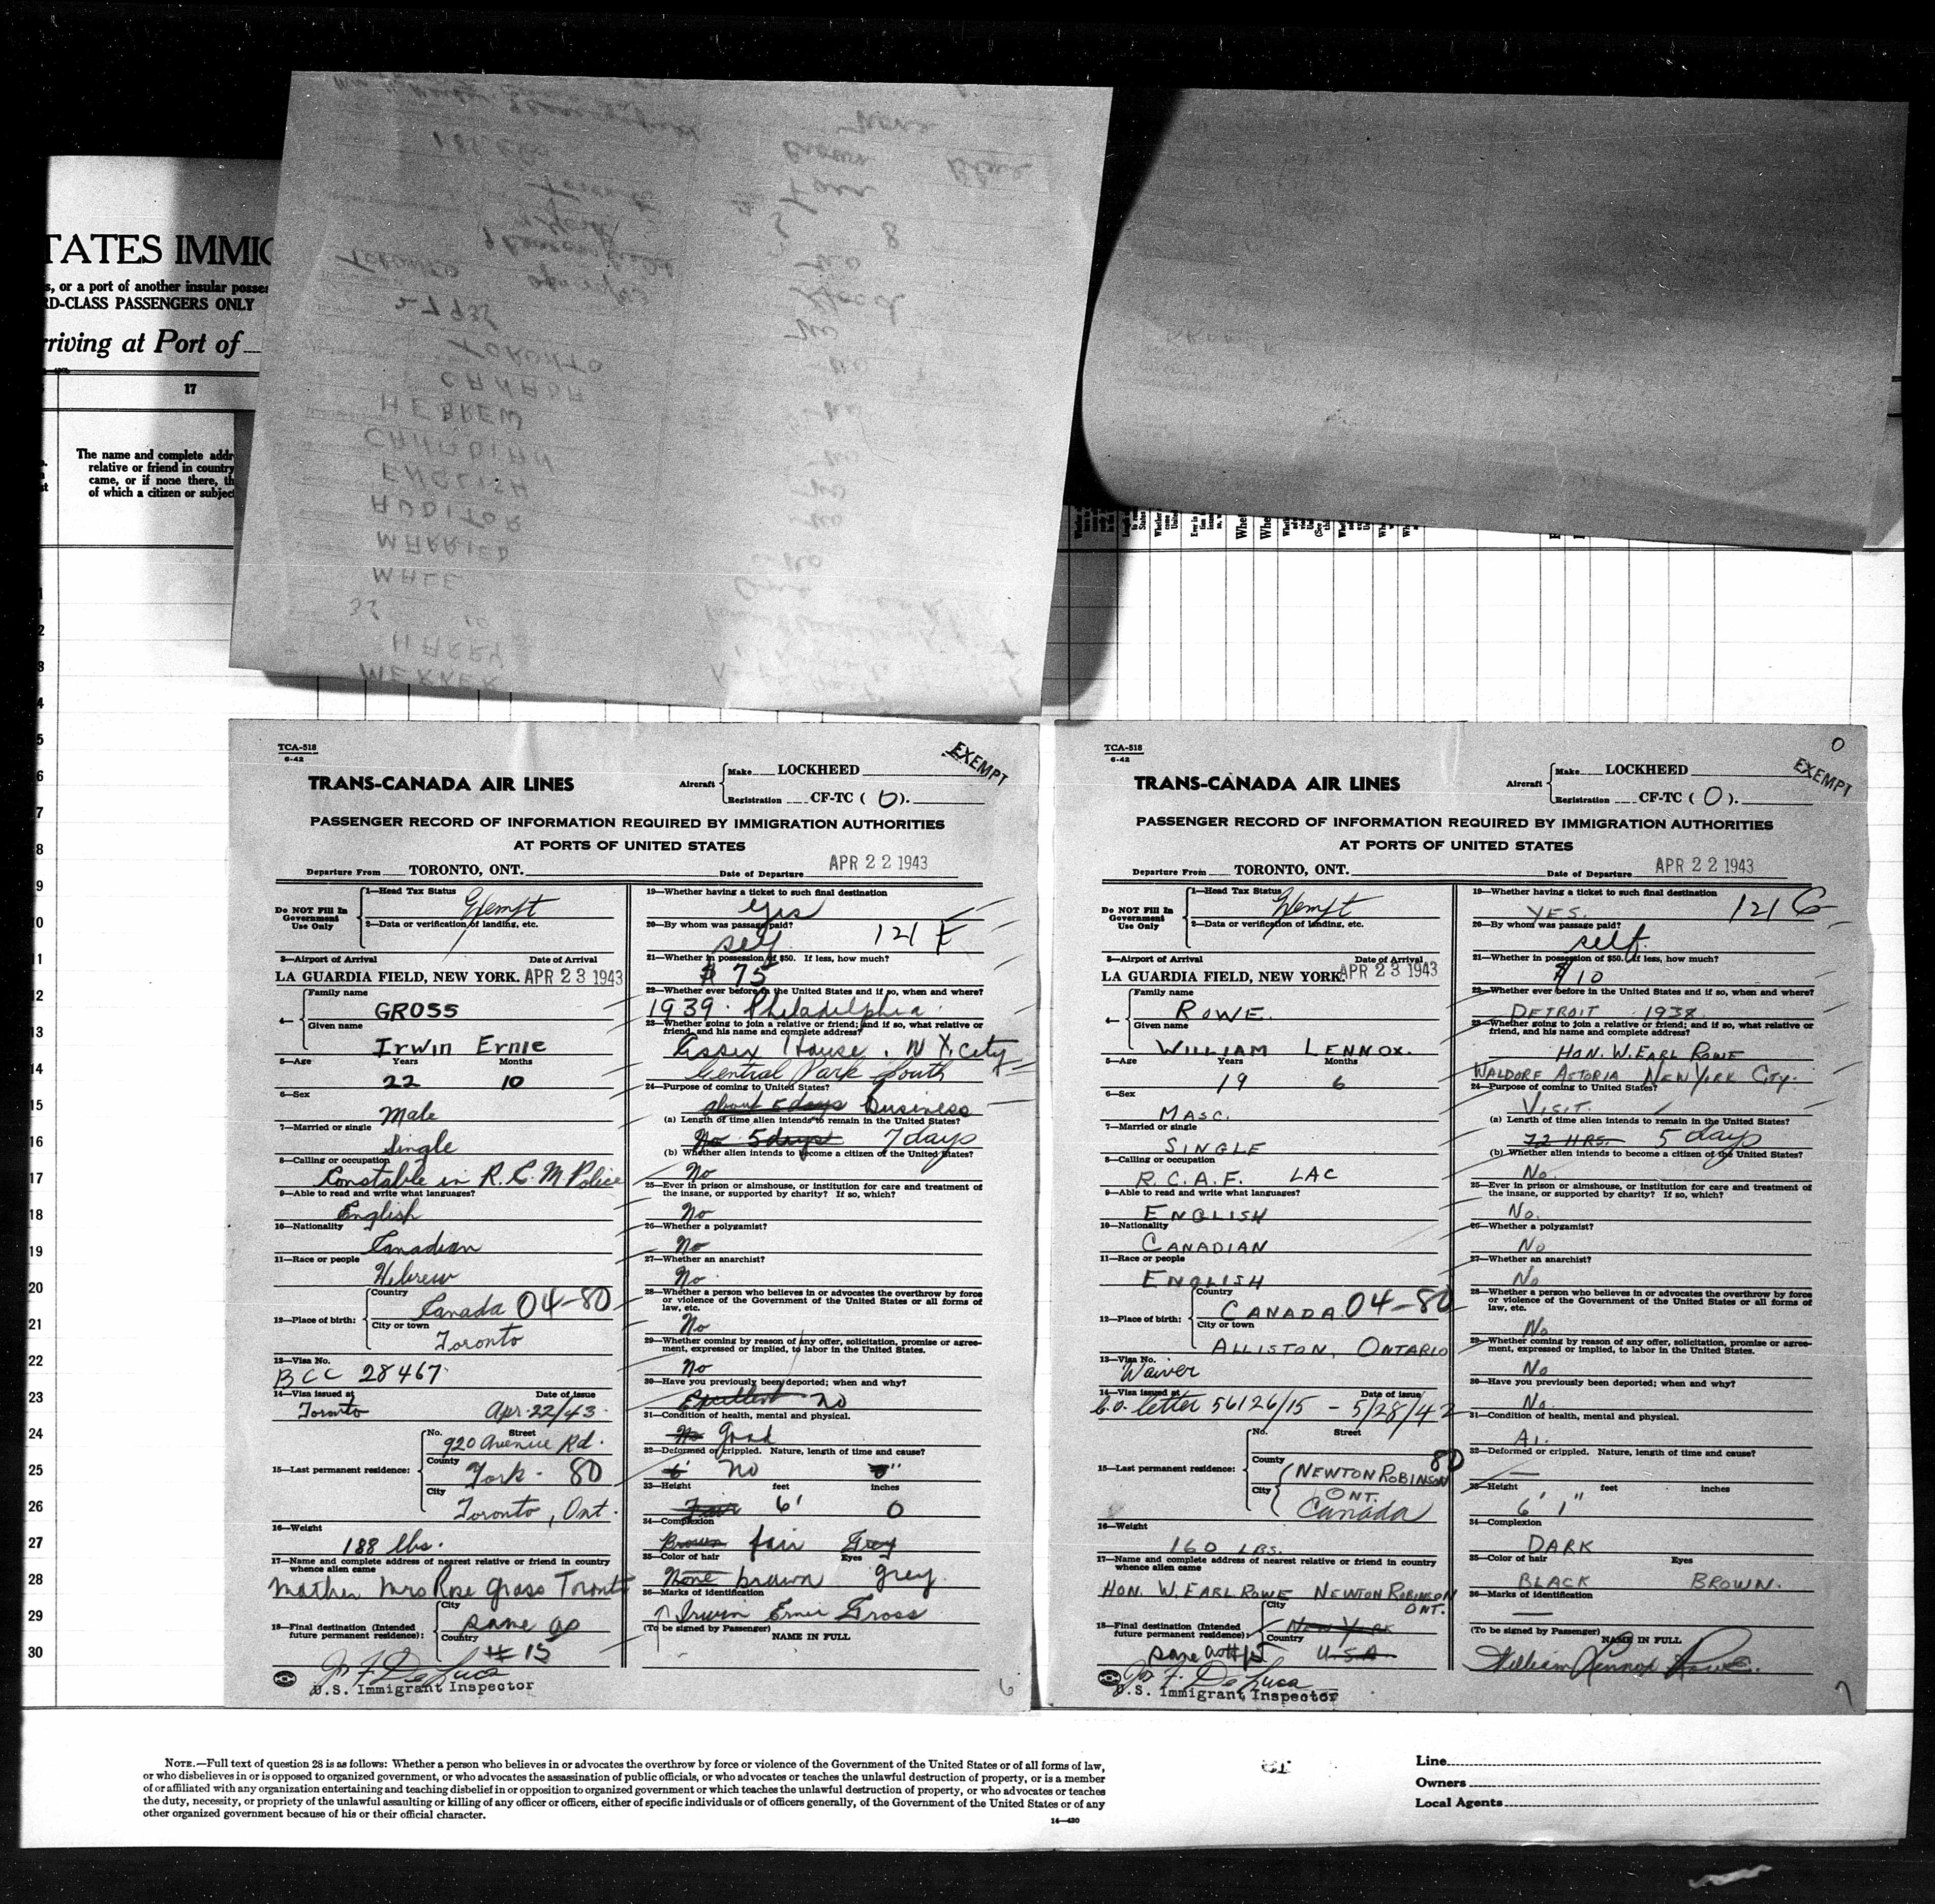 TATES IMMIG
s, or a port of another insular posses
RD-CLASS PASSENGERS ONLY
rriving at Port of
17
The name and complete addr
relative or friend in country
came, or if none there, th
of which a citizen or subject
WERKER
HARRY
MALE
MARRIED
AUDITOR
ENGLISH
CANADIAN
HEBREW
CANADA
TORONTO
2
3
4
5
6
7
8
9
10
11
12
13
14
15
16
17
18
19
20
21
22
23
24
25
26
27
28
29
30
TCA-518
6-42
EXEMPT
TRANS-CANADA AIR LINES
Aircraft Make LOCKHEED
Registration CF-TC ( O ).
PASSENGER RECORD OF INFORMATION REQUIRED BY IMMIGRATION AUTHORITIES
AT PORTS OF UNITED STATES
Departure From TORONTO, ONT. Date of Departure APR 22 1943
Do NOT Fill In Government Use Only
1—Head Tax Status
Exempt
2—Data or verification of landing, etc.
3—Airport of Arrival Date of Arrival
LA GUARDIA FIELD, NEW YORK. APR 23 1943
4— Family name
GROSS
Given name
Irwin Ernie
5—Age Years Months
22 10
6—Sex
Male
7—Married or single
Single
8—Calling or occupation
Constable in R.C.M Police
9—Able to read and write what languages?
English
10—Nationality
Canadian
11—Race or people
Hebrew
12—Place of birth: Country
Canada 04-80
City or town
Toronto
13—Visa No.
BCC 28467
14—Visa issued at Date of issue
Toronto Apr-22/43
15—Last permanent residence: No. Street
920 Avenue Rd.
County
York - 80
City
Toronto, Ont.
16—Weight
188 lbs.
17—Name and complete address of nearest relative or friend in country whence alien came
Mother Mrs Rose Gross Toronto
18—Final destination (Intended future permanent residence): City
same as
Country
# 15
Jos F. De Luca
U.S. Immigrant Inspector
19—Whether having a ticket to such final destination
yes
20—By whom was passage paid?
self 121 F
21—Whether in possession of $50. If less, how much?
$ 75
22—Whether ever before in the United States and if so, when and where?
1939 Philadelphia
23—Whether going to join a relative or friend; and if so, what relative or
friend, and his name and complete address?
Essex House, N.Y. City
Central Park South
24—Purpose of coming to United States?
about 5 days business
(a) Length of time alien intends to remain in the United States?
No 5 days 7 days
(b) Whether alien intends to become a citizen of the United States?
No
25—Ever in prison or almshouse, or institution for care and treatment of
the insane, or supported by charity? If so, which?
No
26—Whether a polygamist?
No
27—Whether an anarchist?
No
28—Whether a person who believes in or advocates the overthrow by force
or violence of the Government of the United States or all forms of
law, etc.
No
29—Whether coming by reason of any offer, solicitation, promise or agree-
ment, expressed or implied, to labor in the United States.
No
30—Have you previously been deported; when and why?
Excellent no
31—Condition of health, mental and physical.
No Good
32—Deformed or crippled. Nature, length of time and cause?
6' no 0"
33—Height feet inches
Fair 6' 0
34—Complexion
Brown fair Grey
35—Color of hair Eyes
None brown grey
36—Marks of identification
Irwin Ernie Gross
(To be signed by Passenger) NAME IN FULL
6
TCA-518
6-42
0
EXEMPT
TRANS-CANADA AIR LINES
Aircraft Make LOCKHEED
Registration CF-TC ( O ).
PASSENGER RECORD OF INFORMATION REQUIRED BY IMMIGRATION AUTHORITIES
AT PORTS OF UNITED STATES
Departure From TORONTO, ONT. Date of Departure APR 22 1943
Do NOT Fill In Government Use Only
1—Head Tax Status
Exempt
2—Data or verification of landing, etc.
3—Airport of Arrival Date of Arrival
LA GUARDIA FIELD, NEW YORK. APR 23 1943
4— Family name
ROWE.
Given name
WILLIAM LENNOX.
5—Age Years Months
19 6
6—Sex
MASC.
7—Married or single
SINGLE
8—Calling or occupation
R.C.A.F. LAC
9—Able to read and write what languages?
ENGLISH
10—Nationality
CANADIAN
11—Race or people
ENGLISH
12—Place of birth: Country
CANADA 04-80
City or town
ALLISTON, ONTARIO
13—Visa No.
Waiver
14—Visa issued at Date of issue
C.O. letter 56126/15 - 5/28/42
15—Last permanent residence: No. Street
County
NEWTON ROBINSON 80
City
ONT.
Canada
16—Weight
160 LBS.
17—Name and complete address of nearest relative or friend in country whence alien came
HON. W. EARL ROWE NEWTON ROBINSON
ONT.
18—Final destination (Intended future permanent residence): City
New York
Country
same as #15 U.S.A.
Jos. F. De Luca
U.S. Immigrant Inspector
19—Whether having a ticket to such final destination
YES. 121 G
20—By whom was passage paid?
self
21—Whether in possession of $50. If less, how much?
$10
22—Whether ever before in the United States and if so, when and where?
DETROIT 1938.
23—Whether going to join a relative or friend; and if so, what relative or
friend, and his name and complete address?
HON. W. EARL ROWE
WALDORF ASTORIA NEW YORK CITY.
24—Purpose of coming to United States?
VISIT.
(a) Length of time alien intends to remain in the United States?
72 HRS. 5 days
(b) Whether alien intends to become a citizen of the United States?
No.
25—Ever in prison or almshouse, or institution for care and treatment of
the insane, or supported by charity? If so, which?
No.
26—Whether a polygamist?
No
27—Whether an anarchist?
No
28—Whether a person who believes in or advocates the overthrow by force
or violence of the Government of the United States or all forms of
law, etc.
No
29—Whether coming by reason of any offer, solicitation, promise or agree-
ment, expressed or implied, to labor in the United States.
No
30—Have you previously been deported; when and why?
No.
31—Condition of health, mental and physical.
A1.
32—Deformed or crippled. Nature, length of time and cause?
—
33—Height feet inches
6' 1"
34—Complexion
DARK
35—Color of hair Eyes
BLACK BROWN.
36—Marks of identification
—
(To be signed by Passenger) NAME IN FULL
William Lennox Rowe.
7
NOTE.—Full text of question 28 is as follows: Whether a person who believes in or advocates the overthrow by force or violence of the Government of the United States or of all forms of law,
or who disbelieves in or is opposed to organized government, or who advocates the assassination of public officials, or who advocates or teaches the unlawful destruction of property, or is a member
of or affiliated with any organization entertaining and teaching disbelief in or opposition to organized government or which teaches the unlawful destruction of property, or who advocates or teaches
the duty, necessity, or propriety of the unlawful assaulting or killing of any officer or officers, either of specific individuals or of officers generally, of the Government of the United States or of any
other organized government because of his or their official character.
14—430
Line
Owners
Local Agents